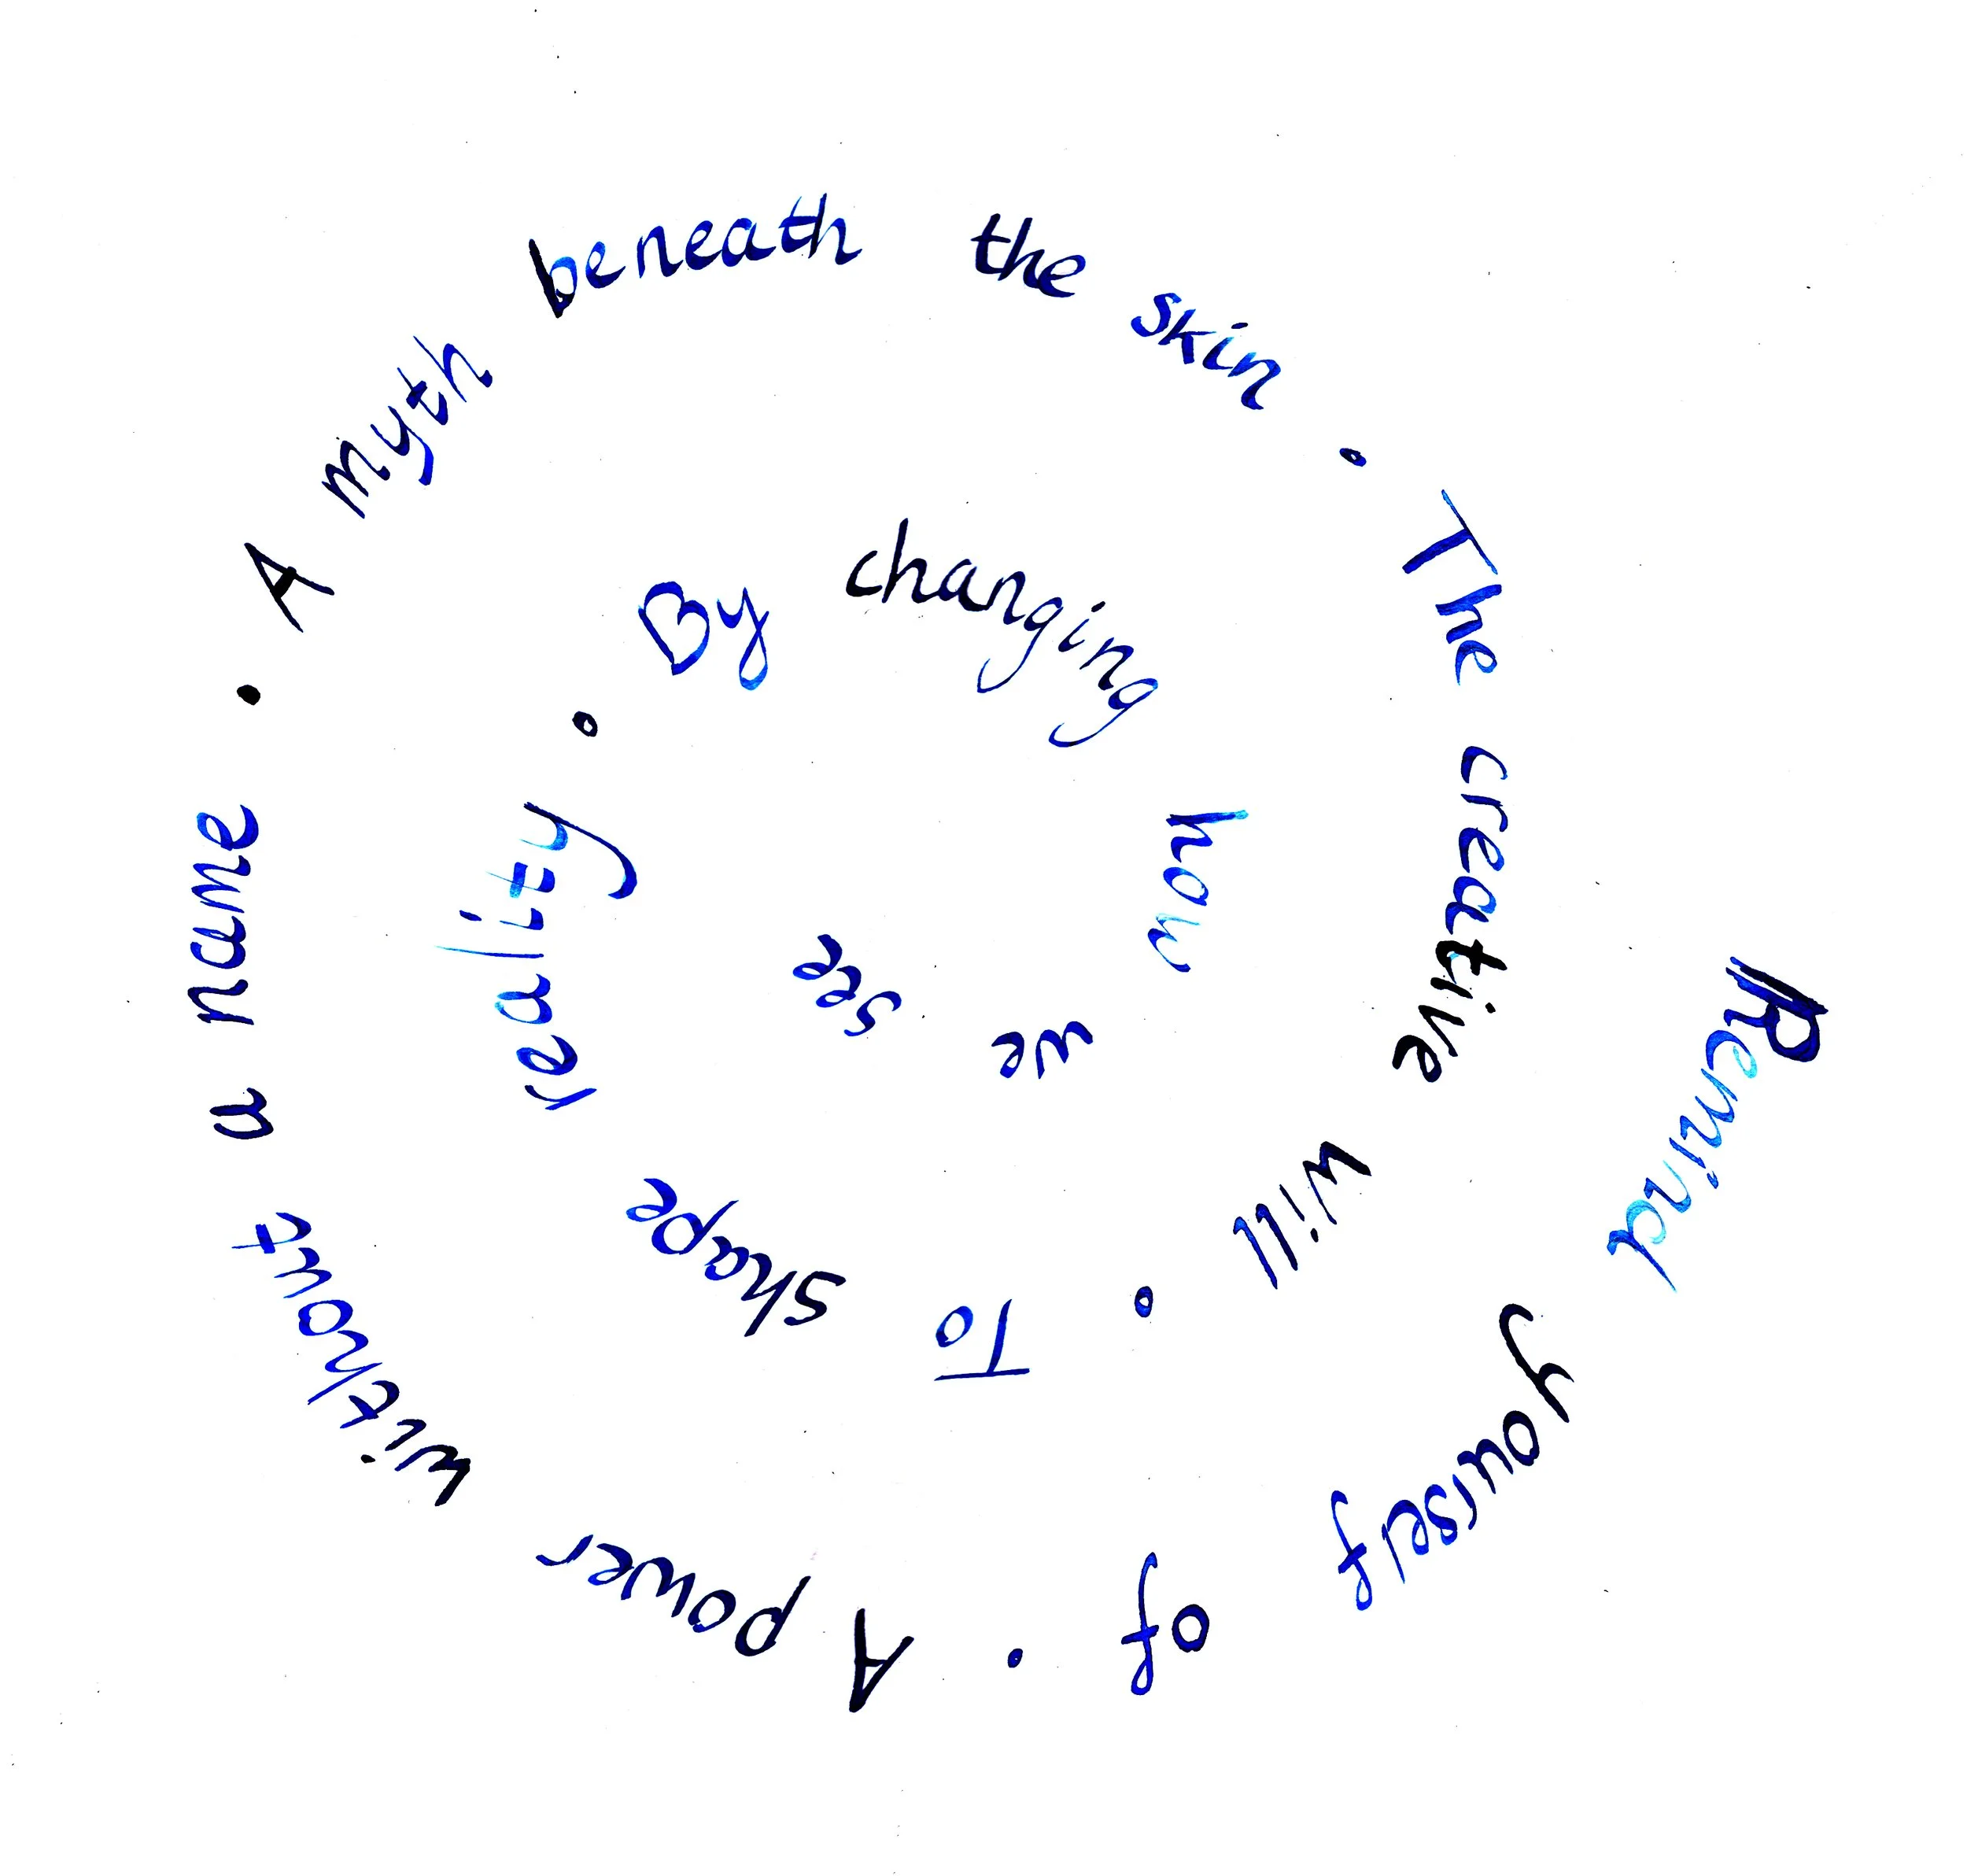 Remind yourself of • A power without a name • A myth beneath the skin • The creative will • To shape reality • By changing how we see